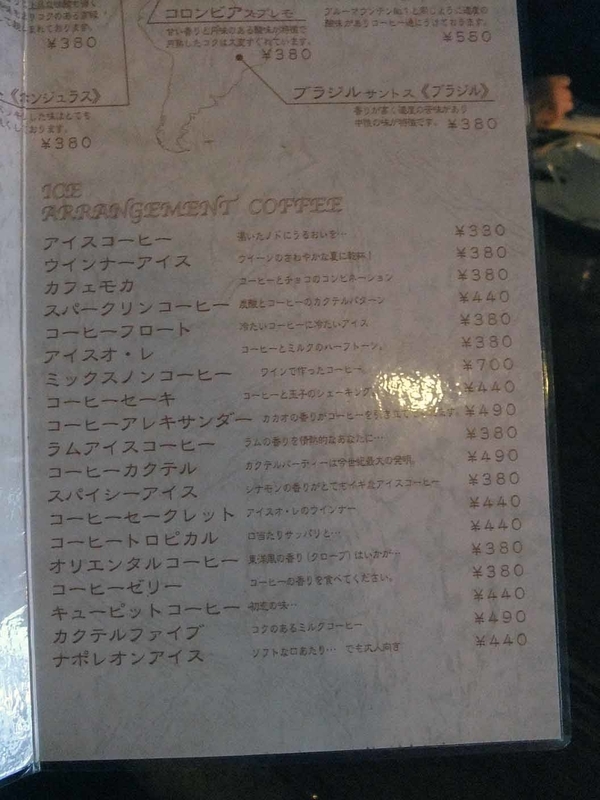 コロンビアスプレモ
甘い香りと丹味のある酸味が特徴で
円熟したコクは大変すぐれています。
¥380
ブルーマウンテンNo.1と同じように適度の
酸味がありコーヒー通にうけております。
¥580
¥380
《ホンジュラス》
した味はとても
ております。
¥380
ブラジルサントス《ブラジル》
香りが高く適度の苦味があり
中性の味が特徴です。 ¥380
ICE
ARRANGEMENT COFFEE
アイスコーヒー 渇いたノドにうるおいを… ¥330
ウインナーアイス ウイーンのさわやかな夏に乾杯! ¥380
カフェモカ コーヒーとチョコのコンビネーション ¥380
スパークリンコーヒー 炭酸とコーヒーのカクテルパターン ¥440
コーヒーフロート 冷たいコーヒーに冷たいアイス ¥380
アイスオ・レ コーヒーとミルクのハーフトーン。 ¥380
ミックスノンコーヒー ワインで作ったコーヒー。 ¥700
コーヒーセーキ コーヒーと玉子のシェーキング。 ¥440
コーヒーアレキサンダー カカオの香りがコーヒーを引き立てております。 ¥490
ラムアイスコーヒー ラムの香りを情熱的なあなたに… ¥380
コーヒーカクテル カクテルパーティーは今世紀最大の発明。 ¥490
スパイシーアイス シナモンの香りがとてもイキなアイスコーヒー ¥380
コーヒーセークレット アイスオ・レのウインナー ¥440
コーヒートロピカル 口当たりサッパリと… ¥440
オリエンタルコーヒー 東洋風の香り(クローブ)はいかが… ¥380
コーヒーゼリー コーヒーの香りを食べてください。 ¥380
キューピットコーヒー 初恋の味… ¥440
カクテルファイブ コクのあるミルクコーヒー ¥490
ナポレオンアイス ソフトな口あたり… でも大人向き ¥440